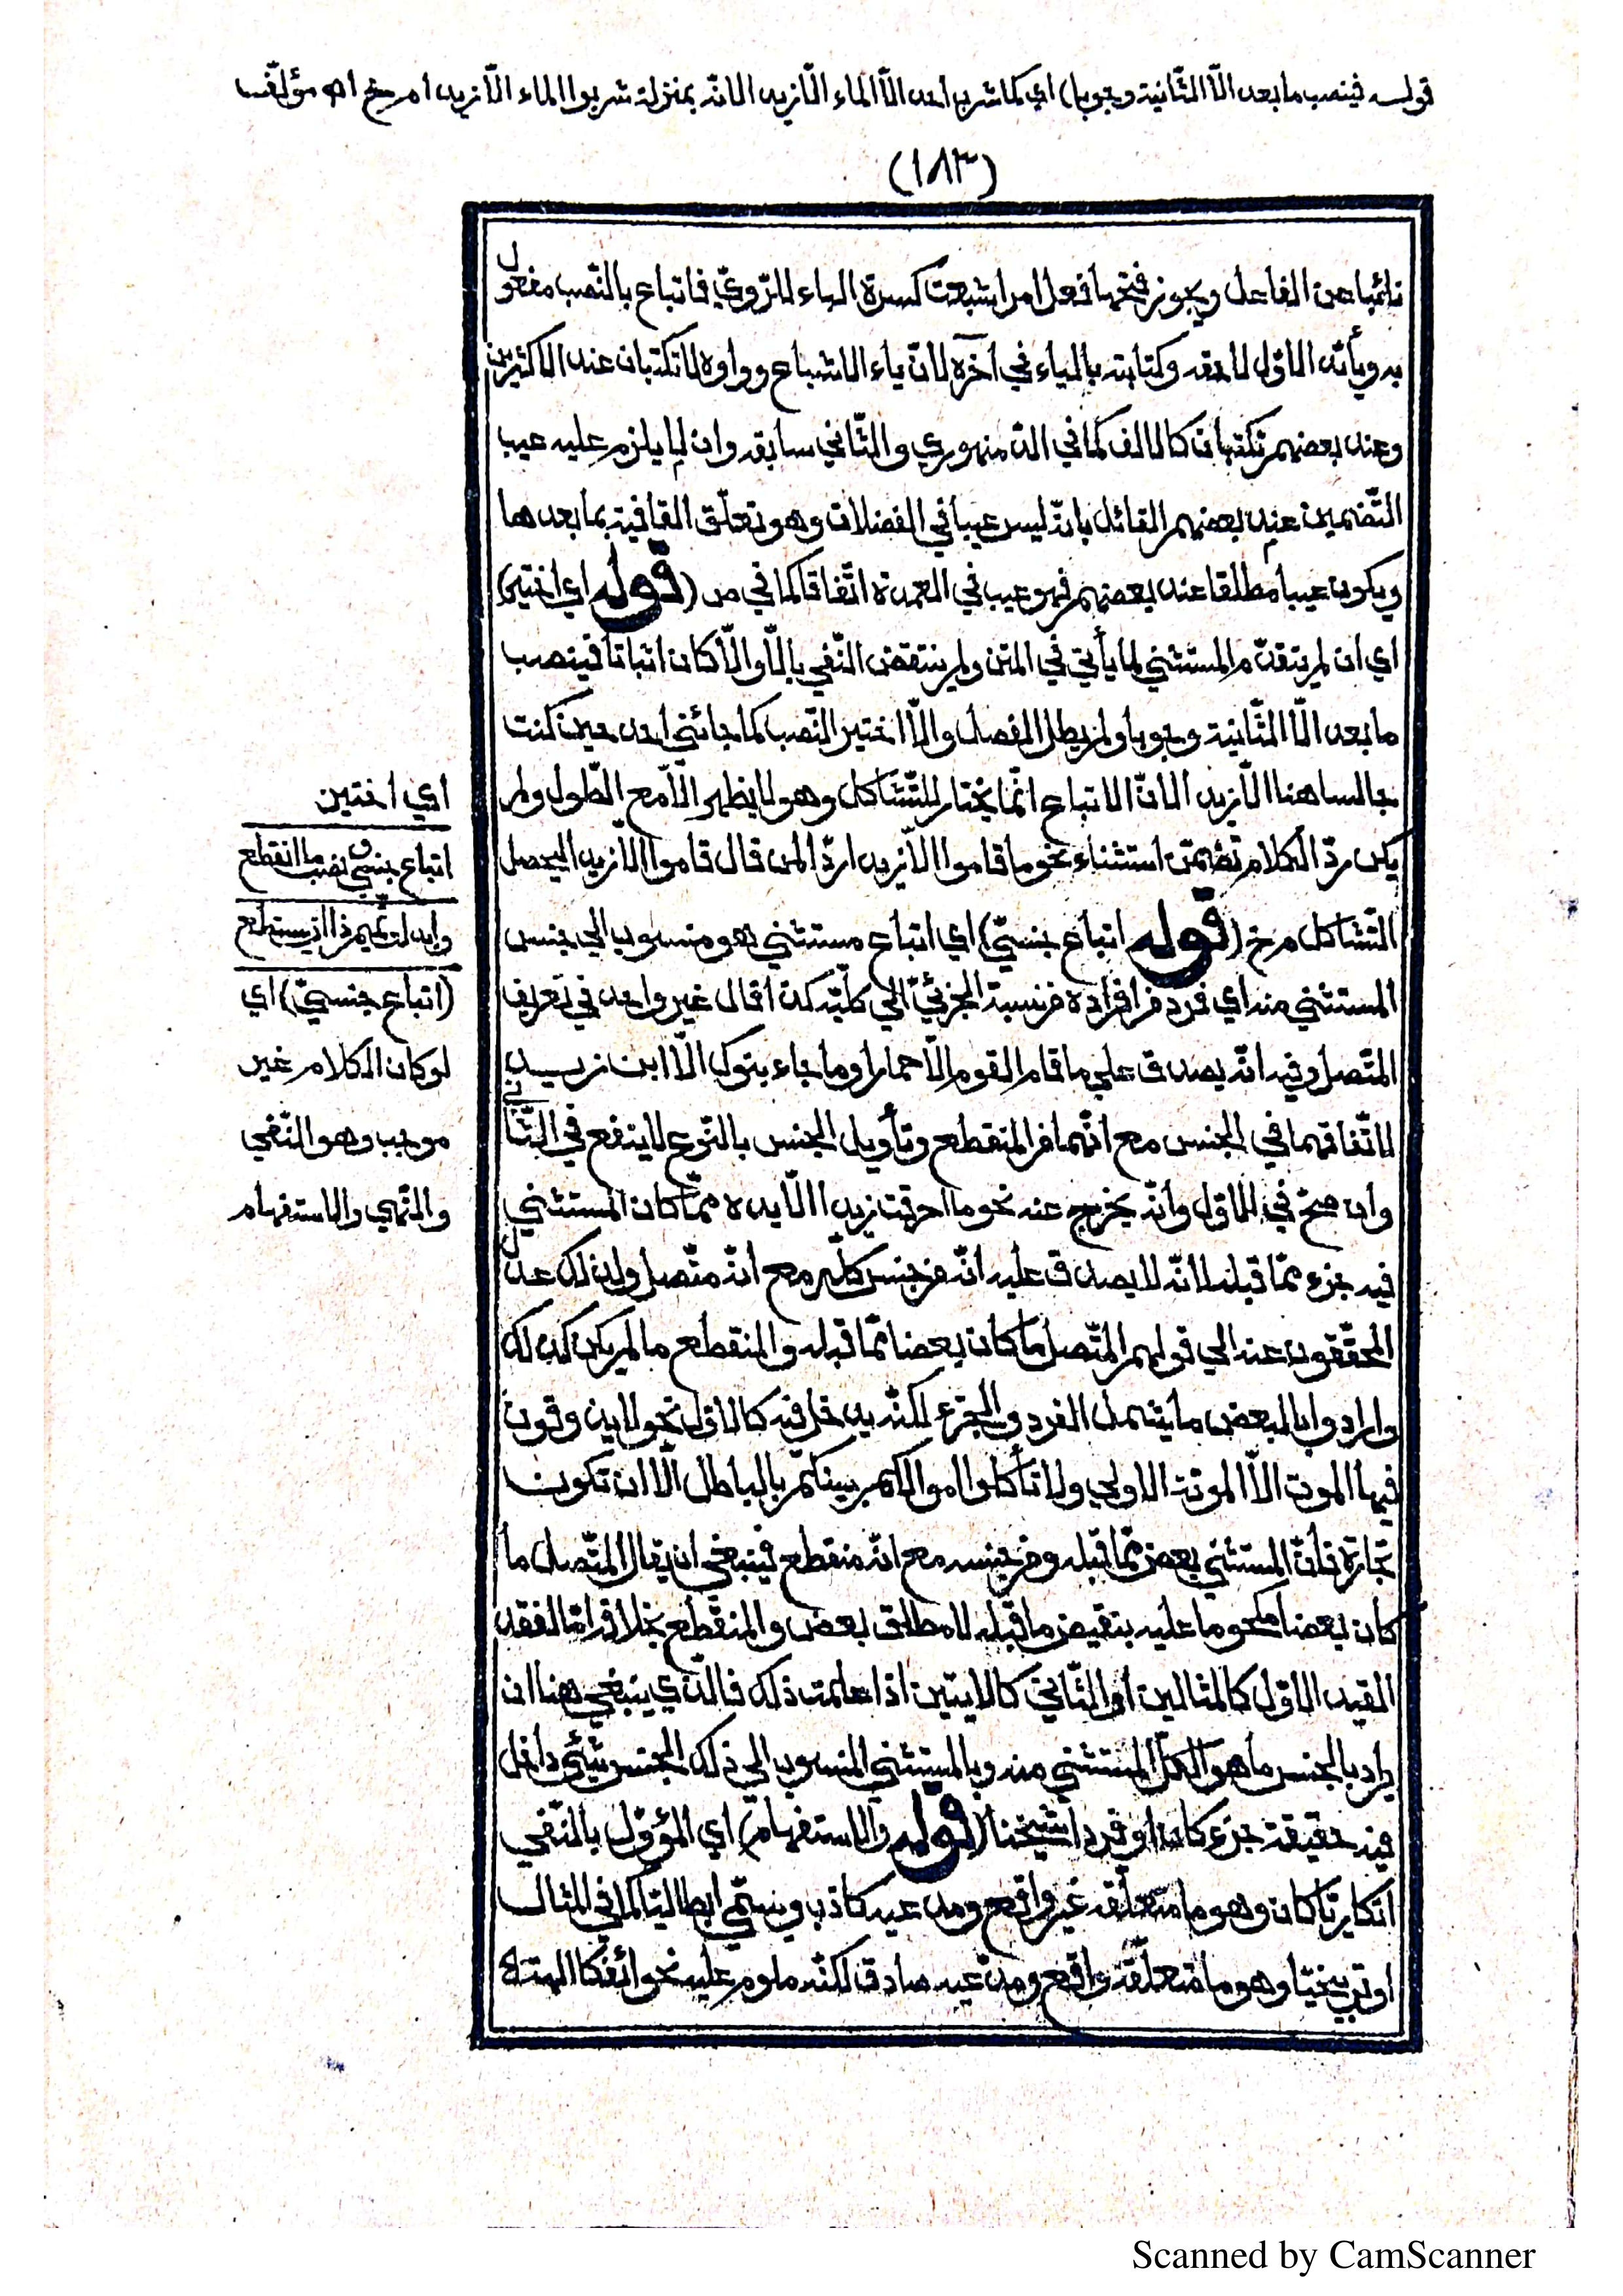 قوله فينصب ما بعد الّا الثّانية وجوبا) اي كما شرب أحد الّا الماء الّا زيد الانّه بمنزلة شربوا الماء الّا زيدا م ر خ اه مؤلّف
(١٨٣)
نائبا عن الفاعل ويجوز فتحها فعل امر اشبعت كسرة الباء للرّويّ فاتباع بالنّصب مفعول
به ويأيّد الاوّل لاحقه وكتابته بالياء في آخره لانّ ياء الاشباع وواوه لا تكتبان عند الاكثرين
وعند بعضهم تكتبان كالالف كما في الدّمنهوري والثّاني سابقه وان لا يلزم عليه عيب
التّضمين عند بعضهم القائل بانّه ليس عيبا في الفضلات وهو تعلّق القافية بما بعدها
ويكون عيبا مطلقا عند بعضهم فهو عيب في العمدة اتّفاقا كما في ص (قوله اي اختير)
اي ان لم يتقدّم المستثني لما يأتي في المتن ولم ينتقض النّفي بالّا والّا كان اثباتا فينصب
ما بعد الّا الثّانية وجوبا ولم يطل الفصل والّا اختير النّصب كما جائني أحد حين كنت
جالسا هنا الّا زيد الانّ الاتباع انّما يختار للتّشاكل وهو لا يظهر الّا مع الطّول ولم
يكن ردّ الكلام تضمّن استثناء نحو ما قاموا الّا زيد اردّا لمن قال قاموا الّا زيد اليحصل
التّشاكل م ر خ (قوله اتباع جنسيّ) اي اتباع مستثني هو منسوب الي جنس
المستثني منه اي فرد من افراده من نسبة الجزئيّ الي كلّيّه كذا قال غير واحد في تعريف
المتّصل وفيه انّه يصدق علي ما قام القوم الّا حمارا وما جاء بنوك الّا ابن زيد
لاتّفاقهما في الجنس مع انّهما من المنقطع وتأويل الجنس بالنّوع لا ينفع في الثّاني
وان صحّ في الاوّل وانّه يخرج عنه نحو ما احرقت زيدا الّا يده ممّا كان المستثني
فيه جزء ممّا قبله لانّه لا يصدق عليه انّه من جنس كلّه مع انّه متّصل ولذلك عدل
المحقّقون عنه الي قولهم المتّصل ما كان بعضا ممّا قبله والمنقطع ما لم يكن كذلك
وارادوا بالبعض ما يشمل الفرد والجزء لكنّه يدخل فيه كالاوّل نحو لا يذوقون
فيها الموت الّا الموتة الاولي ولا تأكلوا اموالكم بينكم بالباطل الّا ان تكون
تجارة فانّ المستثني بعض ممّا قبله ومن جنسه مع انّه منقطع فينبغي ان يقال المتّصل ما
كان بعضا محكوما عليه بنقيض ما قبله لا مطلق بعض والمنقطع بخلافه امّا لفقد
القيد الاوّل كالمثالين أو الثّاني كالايتين اذا علمت ذلك فالّذي ينبغي هنا ان
يراد بالجنس ما هو الكلّ المستثني منه وبالمستثني المنسوب الي ذلك الجنس شيئ داخل
فيه حقيقة جزء كان او فردا شيخنا (قوله والاستفهام) اي المؤوّل بالنّفي
انكاريّا كان وهو ما متعلّقه غير واقع ومدّعيه كاذب ويسمّي ابطاليّا كما في المثال
او توبيخيّا وهو ما متعلّقه واقع ومدّعيه صادق لكنّه ملوم عليه نحو ائفكا الهة
اي اختين
اتباع جنسيّ نصب ما انقطع
وابدلت تميم ذا ان يستطع
(اتباع جنسيّ) اي
لو كان الكلام غير
موجب وهو النّفي
والنّهي والاستفهام
Scanned by CamScanner